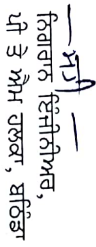 — ਸਹੀ —
ਨਿਗਰਾਨ ਇੰਜੀਨੀਅਰ,
ਪੀ ਤੇ ਐਮ ਹਲਕਾ, ਬਠਿੰਡਾ